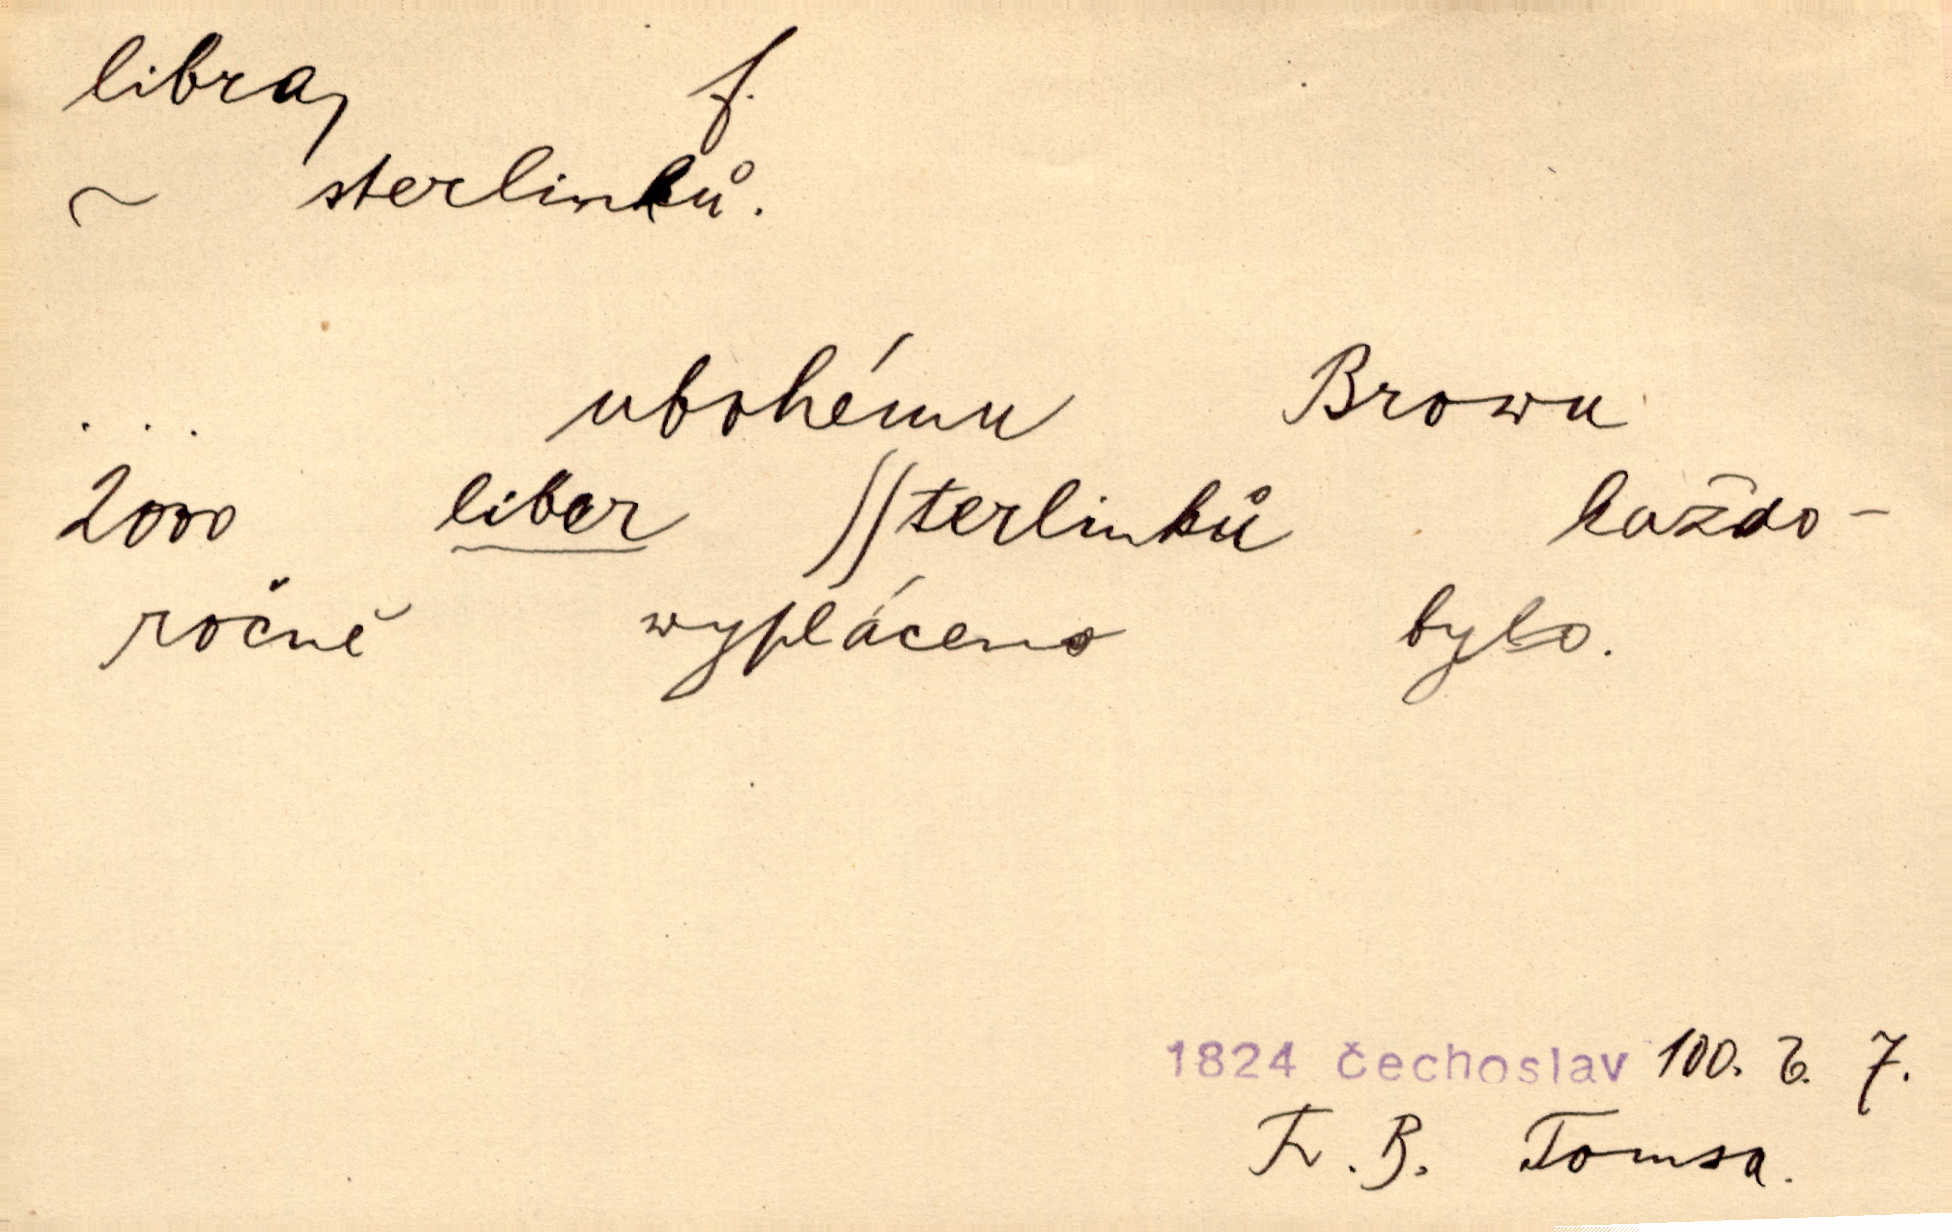 libra, f.
~ sterlinků.
... ubohému Browu
2000 liber ſſterlinků každo-
ročně wypláceno bylo.
1824 čechoslav 100. č. 7.
Fr. B. Tomsa.